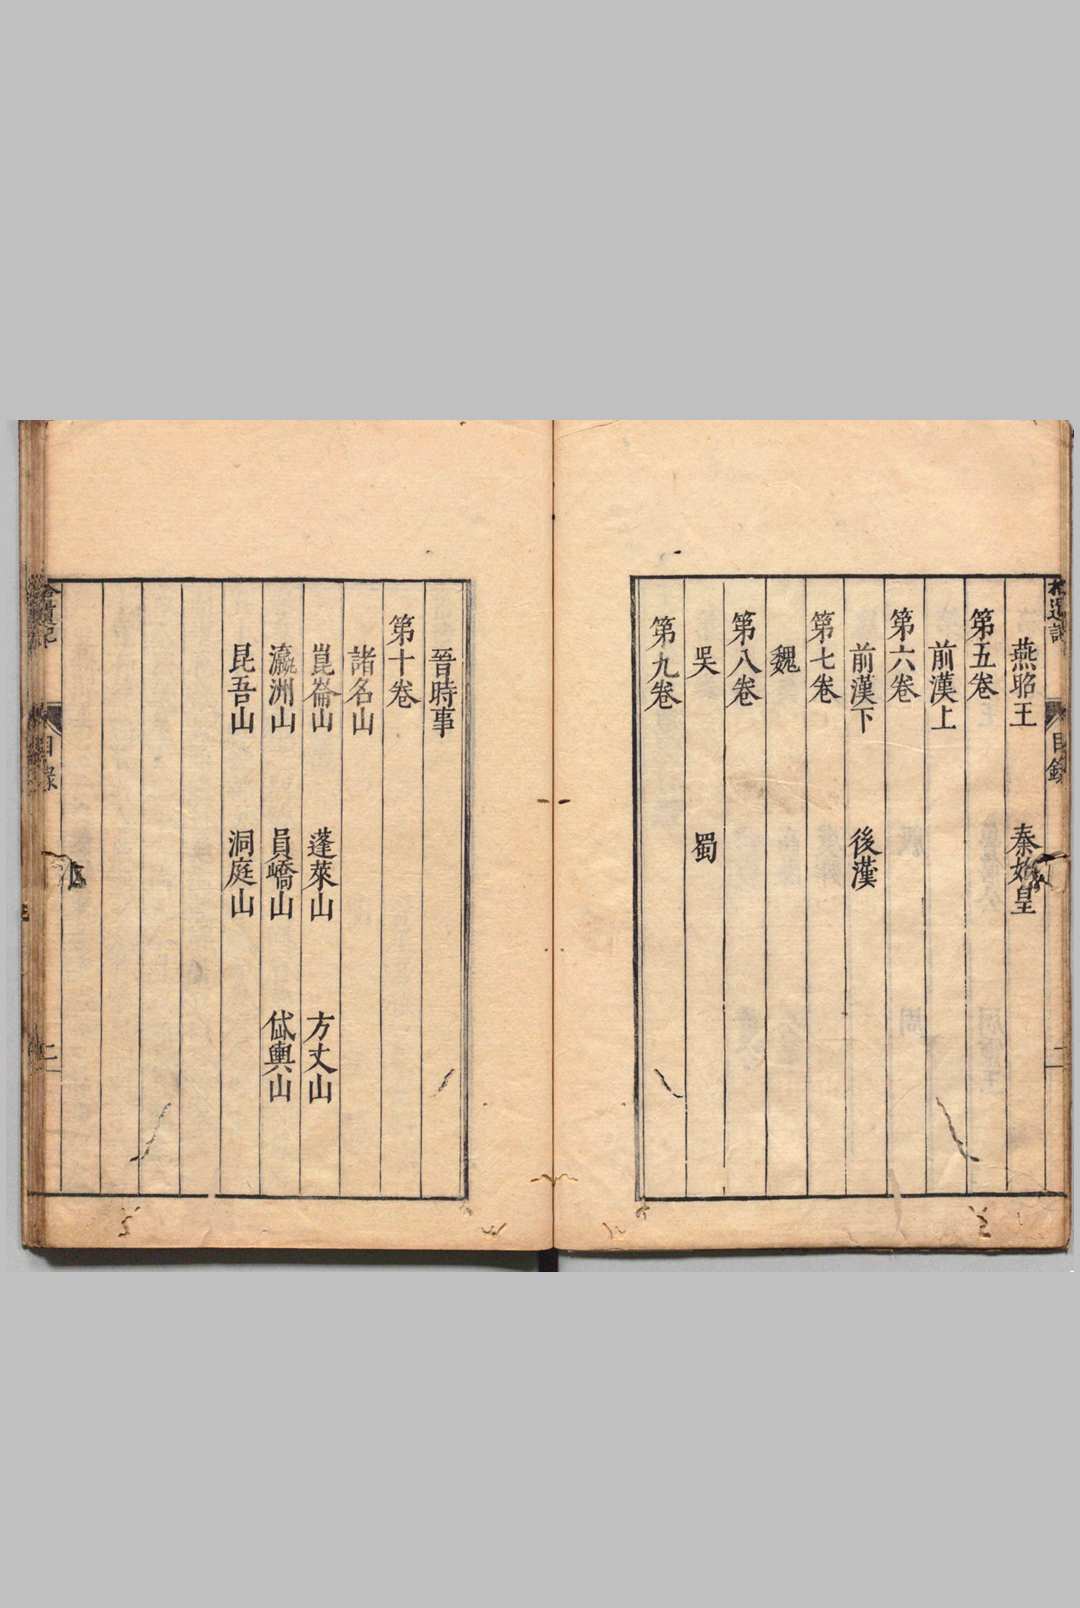 拾遺記
目錄
二
燕昭王 秦始皇
第五卷
前漢上
第六卷
前漢下 後漢
第七卷
魏
第八卷
吳 蜀
第九卷
晉時事
第十卷
諸名山
崑崙山 蓬萊山 方丈山
瀛洲山 員嶠山 岱輿山
昆吾山 洞庭山
拾遺記
目錄
二